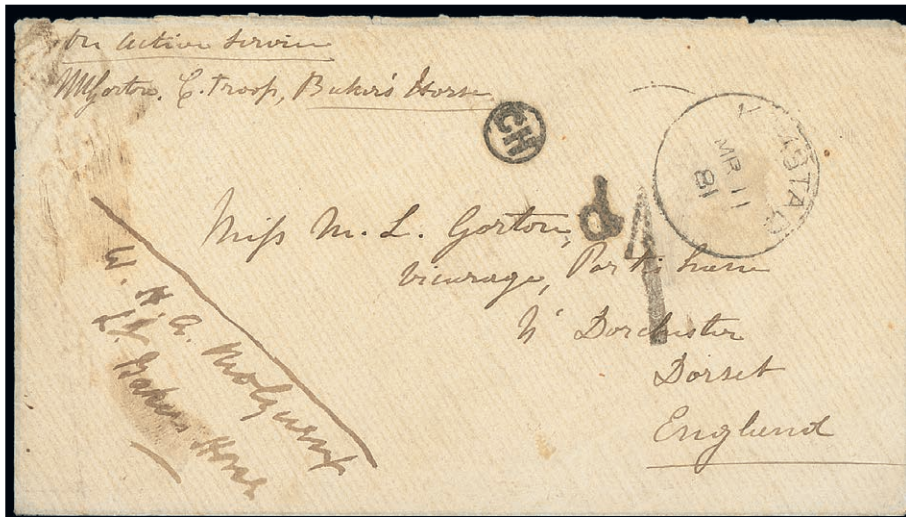 On Active Service
Gorton, C. Troop, Baker's Horse
CH
MR 11
81
1d
Miss M. L. Gorton,
Vicarage,
Nr Dorchester
Dorset
England
W. H. A. Molyneux
Lt Bakers Horse